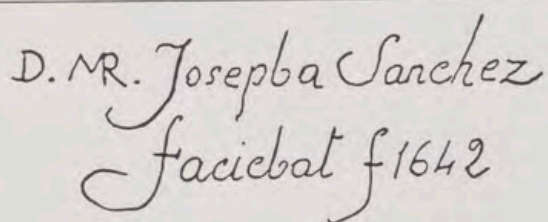 D. MR. Josepba Sanchez
faciebat f 1642